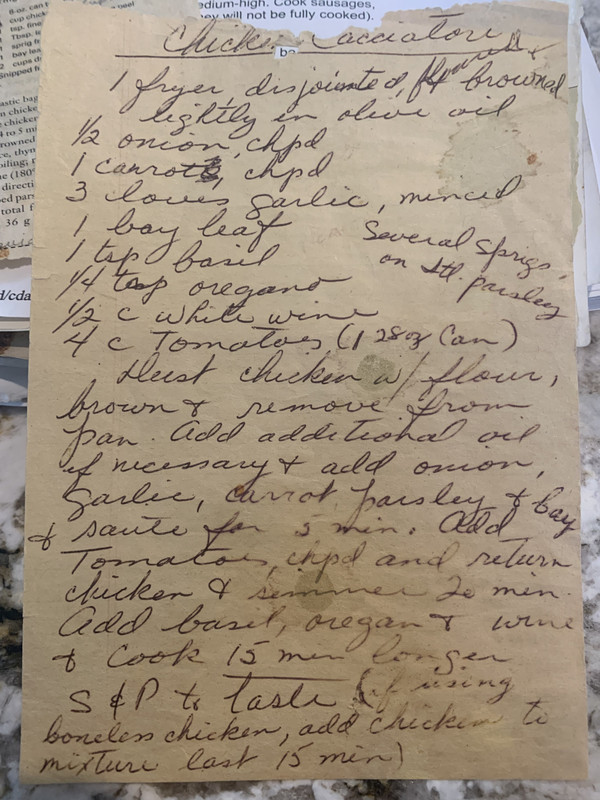 8-oz. can
cup chick
tsp. fine
Tbsp.
sprig fr
bay lea
cups d
Snipped fr
edium-high. Cook sausages,
ey will not be fully cooked).
astic bag
n chicke
chicke
4 to 5 mi
rowned
ce, thym
oiling;
e (180°
directi
ed pars
total f
36 g
d/cda
Chicken Cacciatore
ba
1 fryer, disjointed, floured & browned
lightly in olive oil
1/2 onion, chpd
1 carrot, chpd
3 cloves garlic, minced
1 bay leaf
Several sprigs,
on Itl. parsley
1 tsp basil
1/4 tsp oregano
1/2 c white wine
4 c Tomatoes (1 28oz Can)
Dust chicken w/ flour,
brown & remove from
pan. Add additional oil
if necessary & add onion,
garlic, carrot, parsley & bay
& saute for 5 min. Add
Tomatoes, chpd and return
chicken & simmer 20 min.
Add basil, oregan & wine
& Cook 15 min longer
S & P to taste (if using
boneless chicken, add chicken to
mixture last 15 min)